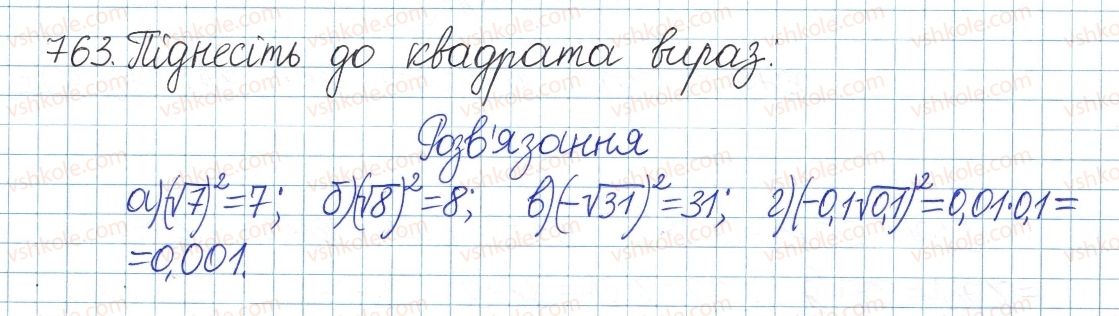 763. Піднесіть до квадрата вираз:
Розв'язання
а)(√7)²=7; б)(√8)²=8; в)(-√31)²=31; г)(-0,1√0,1)²=0,01·0,1=
=0,001.